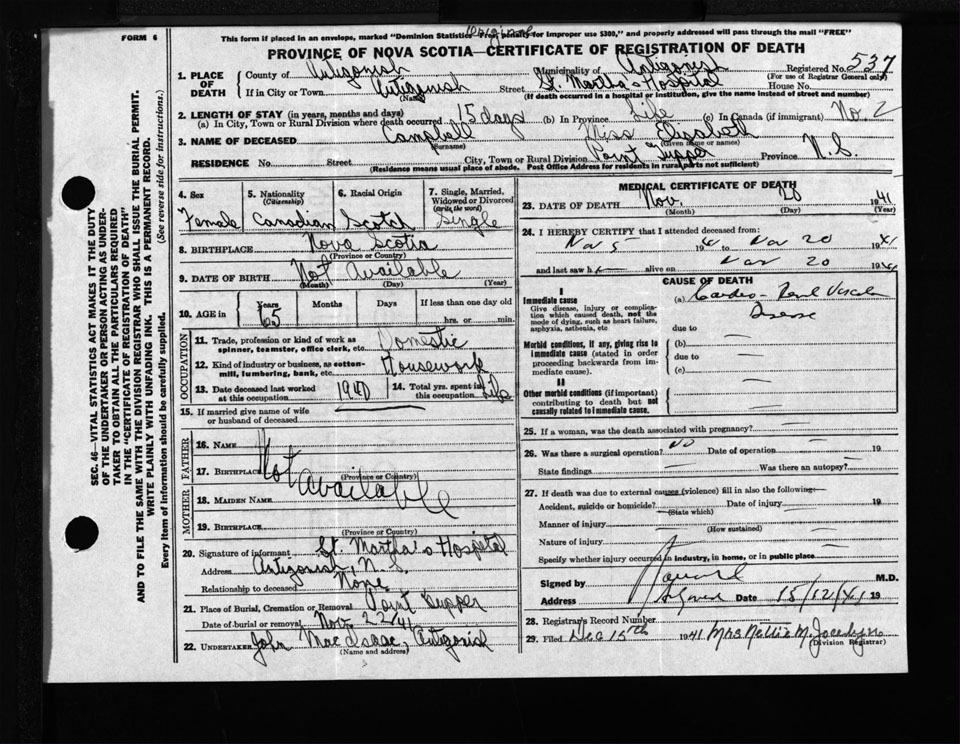 FORM 6
This form if placed in an envelope, marked "Dominion Statistics Free, penalty for improper use $300," and properly addressed will pass through the mail "FREE"
Original
PROVINCE OF NOVA SCOTIA—CERTIFICATE OF REGISTRATION OF DEATH
1. PLACE OF DEATH County of Antigonish Municipality of Antigonish Registered No. 537
(For use of Registrar General only)
If in City or Town Antigonish Street St Martha's Hospital House No.
(Name) (If death occurred in a hospital or institution, give the name instead of street and number)
2. LENGTH OF STAY (in years, months and days)
(a) In City, Town or Rural Division where death occurred 15 days (b) In Province Life (c) In Canada (if immigrant) No. 2
3. NAME OF DECEASED Campbell Miss Elizabeth
(Surname) (Given name or names)
RESIDENCE No. Street City, Town or Rural Division Point Tupper Province N.S.
(Residence means usual place of abode. Post Office Address for residents in rural parts not sufficient)
SEC. 46—VITAL STATISTICS ACT MAKES IT THE DUTY
OF THE UNDERTAKER OR PERSON ACTING AS UNDER-
TAKER TO OBTAIN ALL THE PARTICULARS REQUIRED
IN THE "CERTIFICATE OF REGISTRATION OF DEATH"
AND TO FILE THE SAME WITH THE DIVISION REGISTRAR WHO SHALL ISSUE THE BURIAL PERMIT.
WRITE PLAINLY WITH UNFADING INK. THIS IS A PERMANENT RECORD.
Every item of information should be carefully supplied. (See reverse side for instructions.)
4. Sex Female
5. Nationality (Citizenship) Canadian
6. Racial Origin Scotch
7. Single, Married, Widowed or Divorced (write the word) Single
8. BIRTHPLACE Nova Scotia
(Province or Country)
9. DATE OF BIRTH Not Available
(Month) (Day) (Year)
10. AGE in Years 65 Months Days If less than one day old
hrs. or min.
OCCUPATION
11. Trade, profession or kind of work as spinner, teamster, office clerk, etc. Domestic
12. Kind of industry or business, as cotton-mill, lumbering, bank, etc. Housework
13. Date deceased last worked at this occupation 1940
14. Total yrs. spent in this occupation Life
15. If married give name of wife or husband of deceased
FATHER
16. NAME
17. BIRTHPLACE Not Available
(Province or Country)
MOTHER
18. MAIDEN NAME
19. BIRTHPLACE
(Province or Country)
20. Signature of informant St. Martha's Hospital
Address Antigonish, N.S.
Relationship to deceased None
21. Place of Burial, Cremation or Removal Point Tupper
Date of burial or removal Nov. 22/41
22. UNDERTAKER John MacIsaac, Antigonish
(Name and address)
MEDICAL CERTIFICATE OF DEATH
23. DATE OF DEATH Nov. 20 1941
(Month) (Day) (Year)
24. I HEREBY CERTIFY that I attended deceased from:
Nov 5 1941 to Nov 20 1941
and last saw h alive on Nov 20 1941
CAUSE OF DEATH
I
Immediate cause
Give disease, injury or complication which caused death, not the mode of dying, such as heart failure, asphyxia, asthenia, etc
(a) Cardio-Renal Vascular
Disease
due to
Morbid conditions, if any, giving rise to immediate cause (stated in order proceeding backwards from immediate cause).
(b)
due to
(c)
II
Other morbid conditions (if important) contributing to death but not causally related to immediate cause.
25. If a woman, was the death associated with pregnancy?
26. Was there a surgical operation? No Date of operation 19
State findings Was there an autopsy?
27. If death was due to external causes (violence) fill in also the following:
Accident, suicide or homicide? Date of injury 19
(State which)
Manner of injury
(How sustained)
Nature of injury
Specify whether injury occurred in industry, in home, or in public place
Signed by M.D.
Address Date 15/12/41 19
28. Registrar's Record Number
29. Filed Dec 15th 1941 Mrs Nellie M.
(Division Registrar)